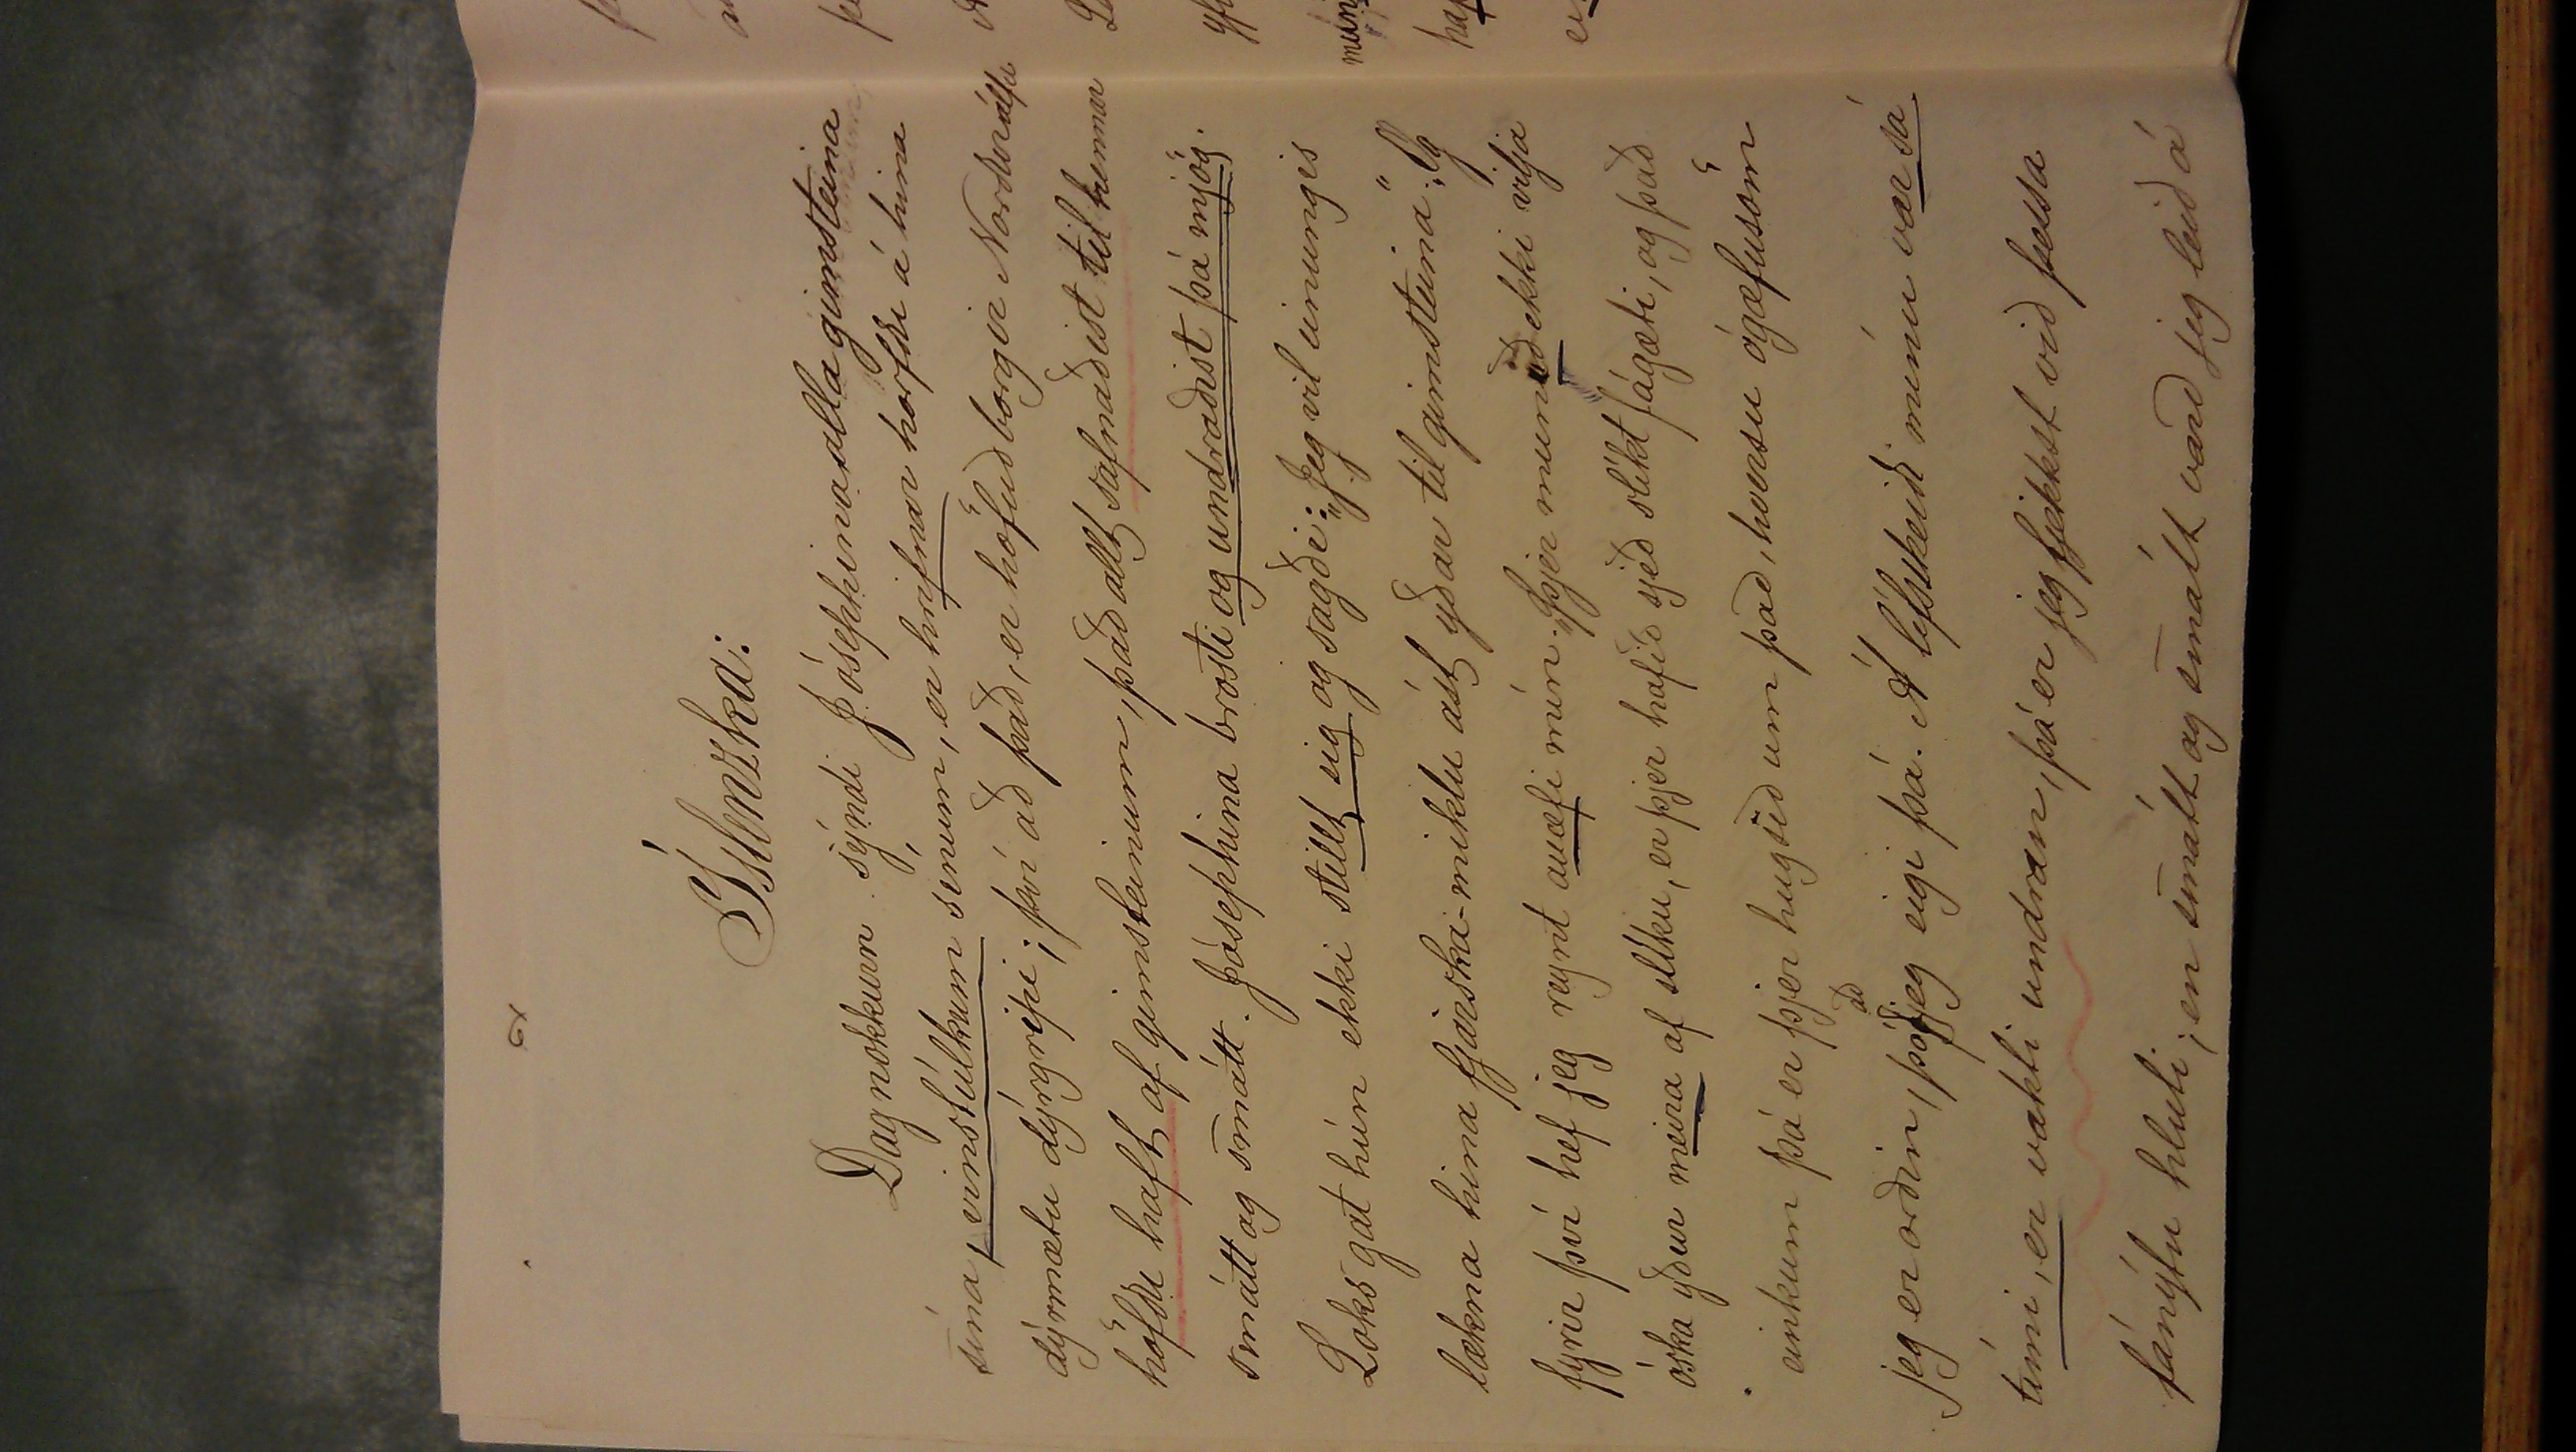 Íslenzka:
Dag nokkurn sýndi Jósephina alla gimsteina
sína, vinstúlkum sínum, er hrifnar horfðu á hina
dýrmætu dýrgripi; því að það, er höfuðborgir Norðurálfu
höfðu haft af gimsteinum, það allt safnaðist til hennar
smátt og smátt. Jósephina brosti og undraðist þá mjög.
Loks gat hún ekki stillt sig og sagði: „Jeg vil einungis
lækna hina fjarska-miklu ást yðar til gimsteina“. „Og
fyrir því hef jeg reynt auæfi mín. „Þjer munuð ekki vilja
óska yður meira af slíku, er þjer hafið sjeð slíkt fágæti, og það
einkum þá er þjer hugsið um það, hversu ógæfusöm
jeg er orðin, þó að jeg eigi þá. Á lífskeiði mínu var sá
tími, er vakti undran, þá er jeg fjekkst við þessa
fánýtu hluti; en smátt og smátt varð jeg leið á